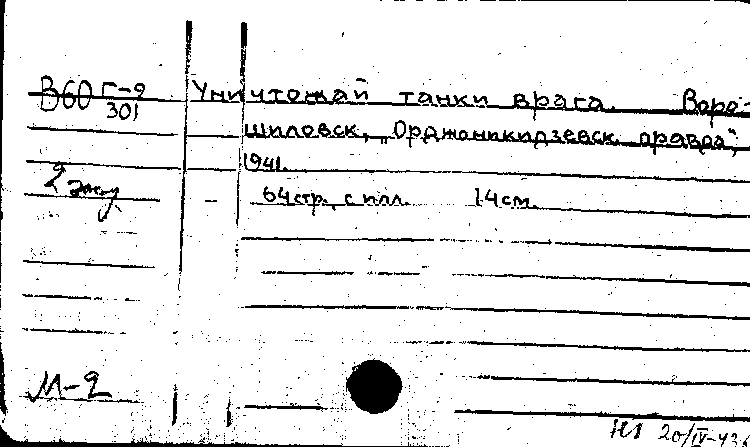 В60 Г-9
301
Уничтожай танки врага. Воро-
шиловск, „Орджоникидзевск. правда",
1941.
2 экз
- 64 стр. с илл. 14 см.
М-2
20/IV-42